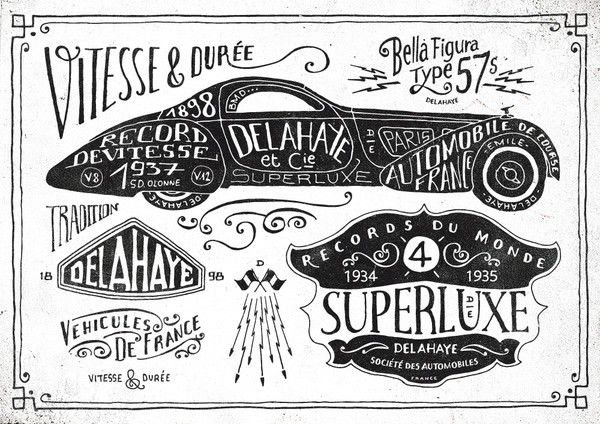 VITESSE & DURÉE
Bella Figura
TYPE 57S
DELAHAYE
1898
B.M.D...
RECORD
DE VITESSE
1937
V8
V12
S.D. OLONNE
DELAHAYE
et Cie
SUPERLUXE
DE
PARIS
AUTOMOBILE DE COURSE
FRANCE
EMILE
DELAHAYE
TRADITION
18 DELAHAYE 98
D
VEHICULES
DE FRANCE
VITESSE & DURÉE
RECORDS DU MONDE
4
1934 1935
SUPERLUXE
DELAHAYE
SOCIÉTÉ DES AUTOMOBILES
FRANCE